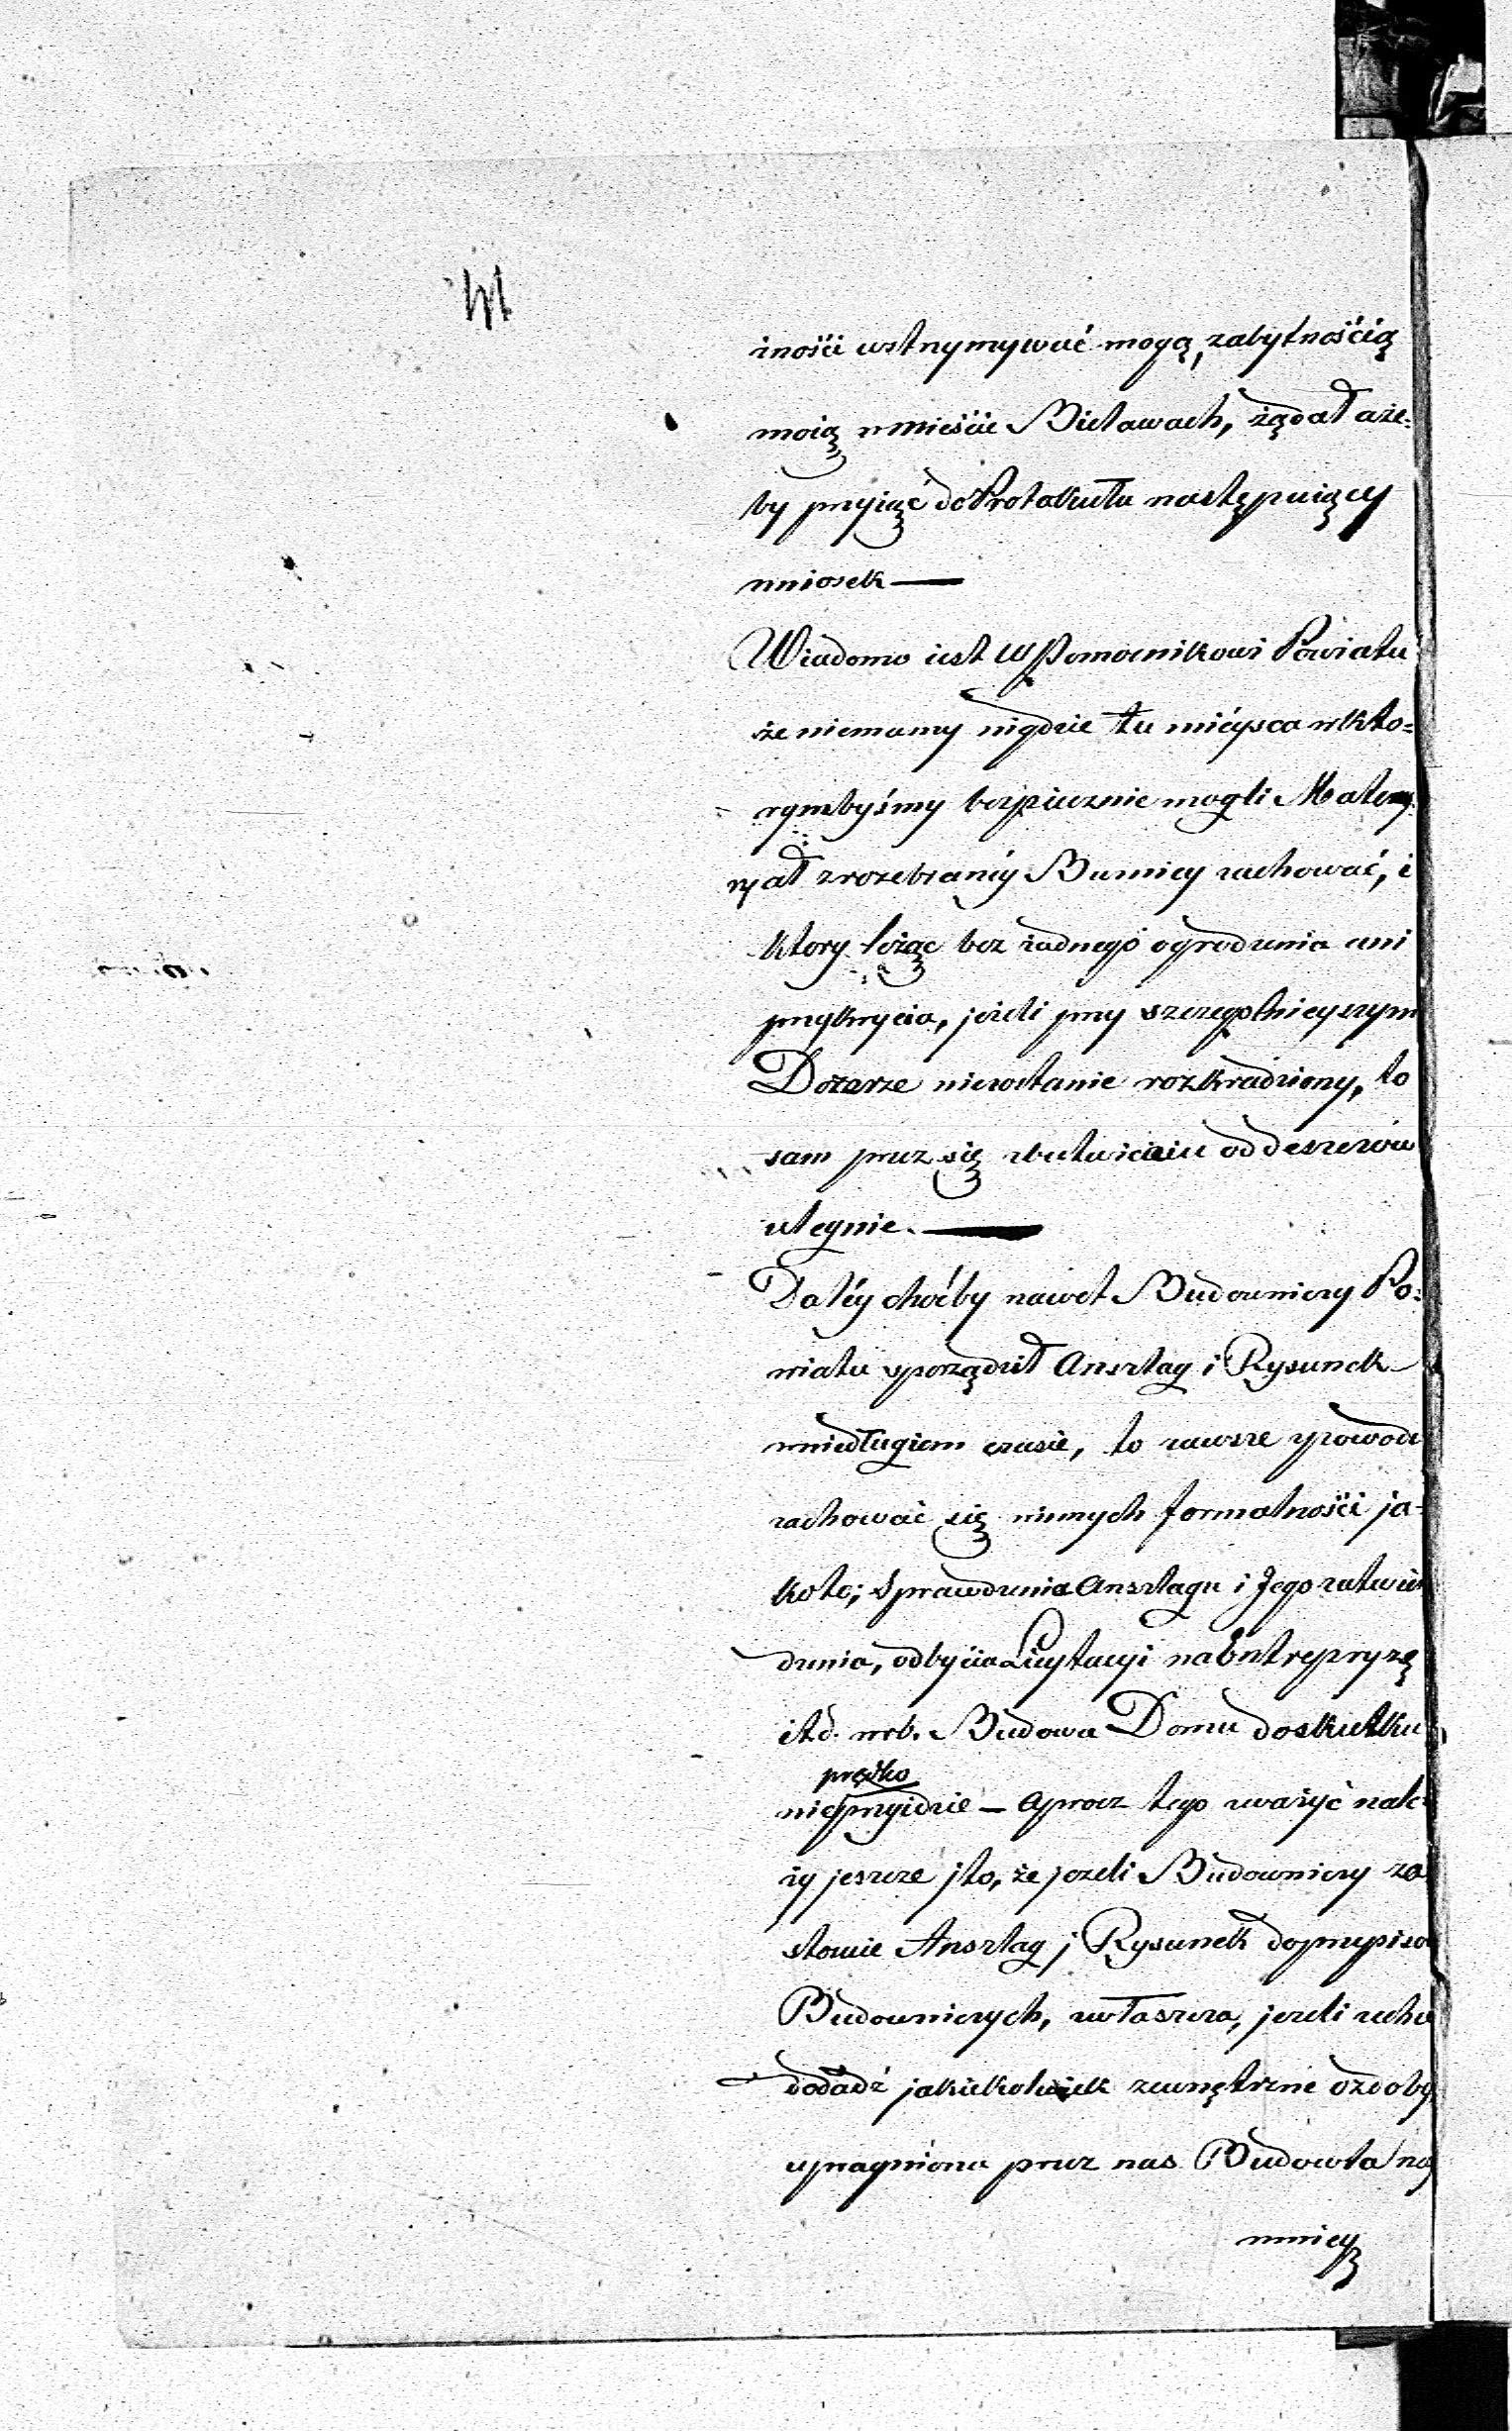 żności wstrzymywać mogą, zabytnością
moią w Mieście Bielawach, żądał aże-
by przyiąć do Protokułu następuiący
wniosek —
Wiadomo iest W Pomocnikowi Powiatu
że niemamy nigdzie tu mieysca w któ-
rymbyśmy bezpiecznie mogli Mater-
ryał z rozebraney Buznicy zachować, i
ktory leżąc bez żadnego ogrodzenia ani
przykrycia, jeżeli przy szczegolnieyszym
Dozorze niezostanie rozkradziony, to
sam przez się zbutwieniu od deszczów
ulegnie. —
Daléy choćby nawet Budowniczy Po-
wiatu sporządził Anszlag i Rysunek
w niedługiem czasie, to zawsze z powodu
zachować się winnych formalności ja-
koto; Sprawdzenia Anszlagu i Jego zatwier
dzenia, odbycia Licytacyi na Entrepryzę
itd. Budowa Domu do skutku
prędko
nieprzyidzie — Oprocz tego zważyć nale-
ży jeszcze j to, że jezeli Budowniczy za
stosuie Anszlag j Rysunek do przepisow
Budowniczych, zwłaszcza, jezeli zechce
dodadź jakiekolwiek zewnętrzne ozdoby,
upragniona przez nas Budowla nay
mniey